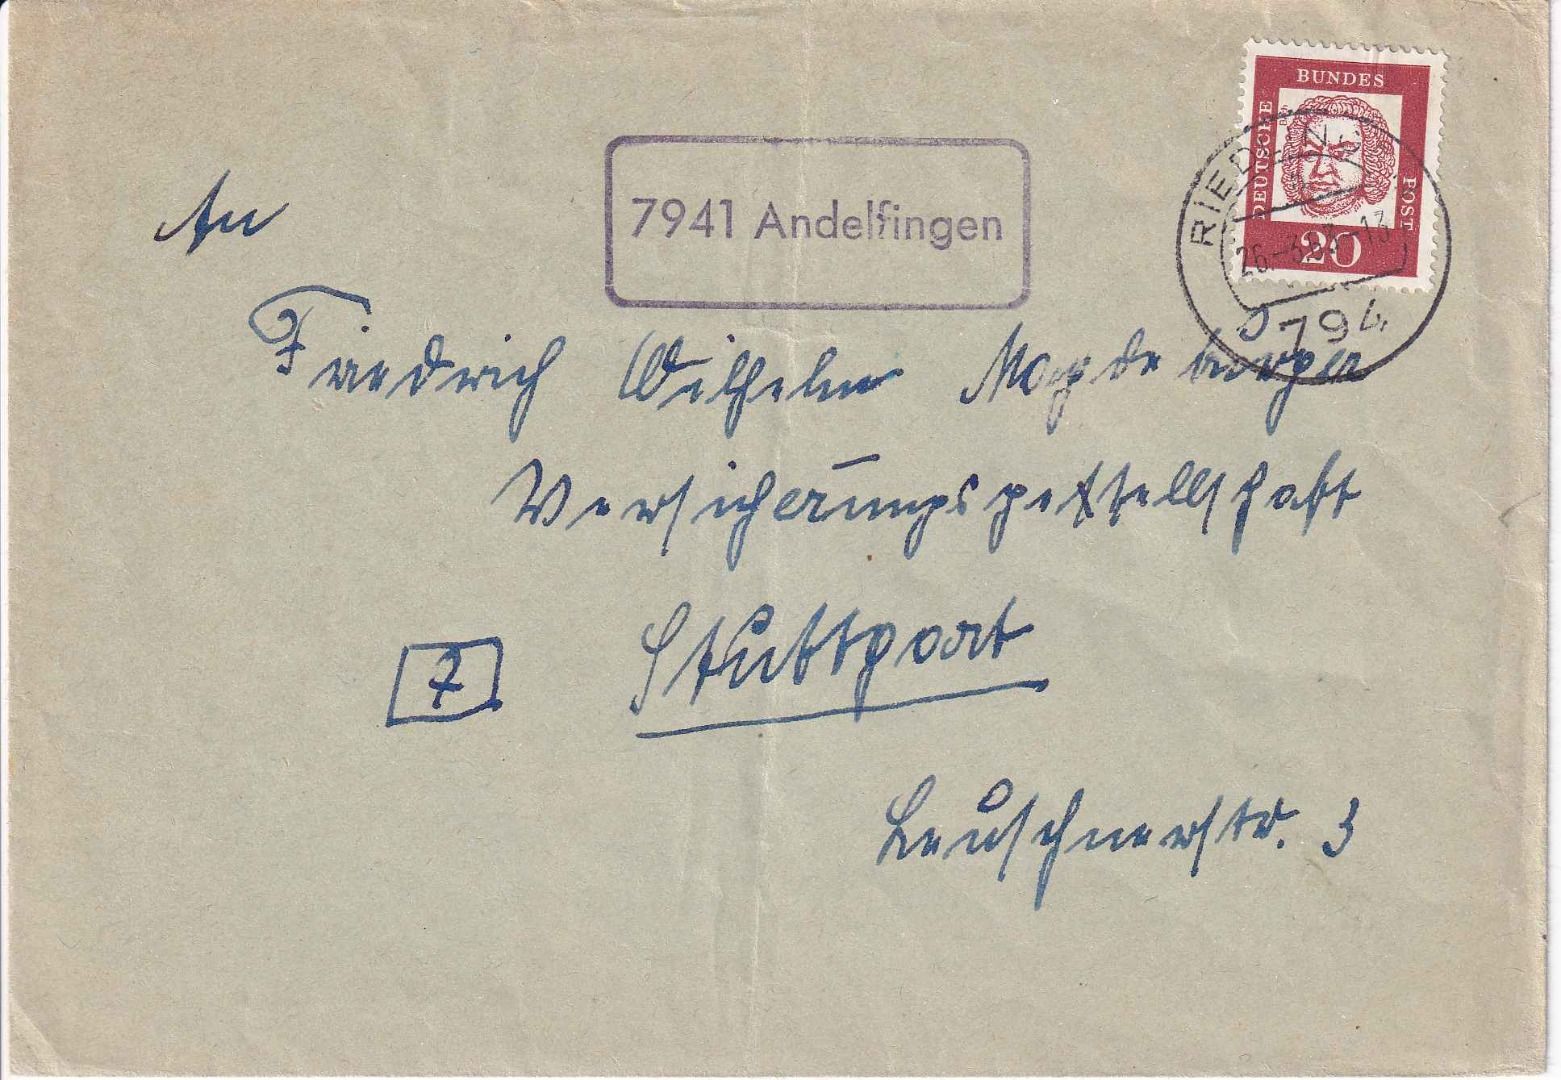 BUNDES
DEUTSCHE
POST
20
RIEDLIN
26.-3.63.-13
794
7941 Andelfingen
An
Friedrich Wilhelm Magdeburger
Versicherungsgesellschaft
7 Stuttgart
Leuschnerstr. 3